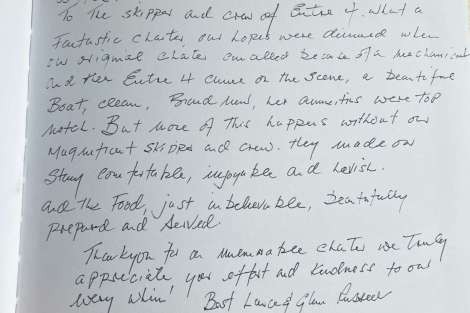 To the skipper and crew of Entre 4. what a
Fantastic charter our hopes were dimmed when
our original charter cancelled because of a mechanical
and then Entre 4 came on the scene, a beautiful
Boat, clean, Brand new, her amenities were top
notch. But none of this happens without our
magnificent skipper and crew. they made our
stay comfortable, injoyable and lavish.
and the Food, just unbelievable, beautifully
prepared and served.
Thankyou for an unmemorable charter we truly
appreciate your effort and kindness to our
every whim'
Best Lance & Glen